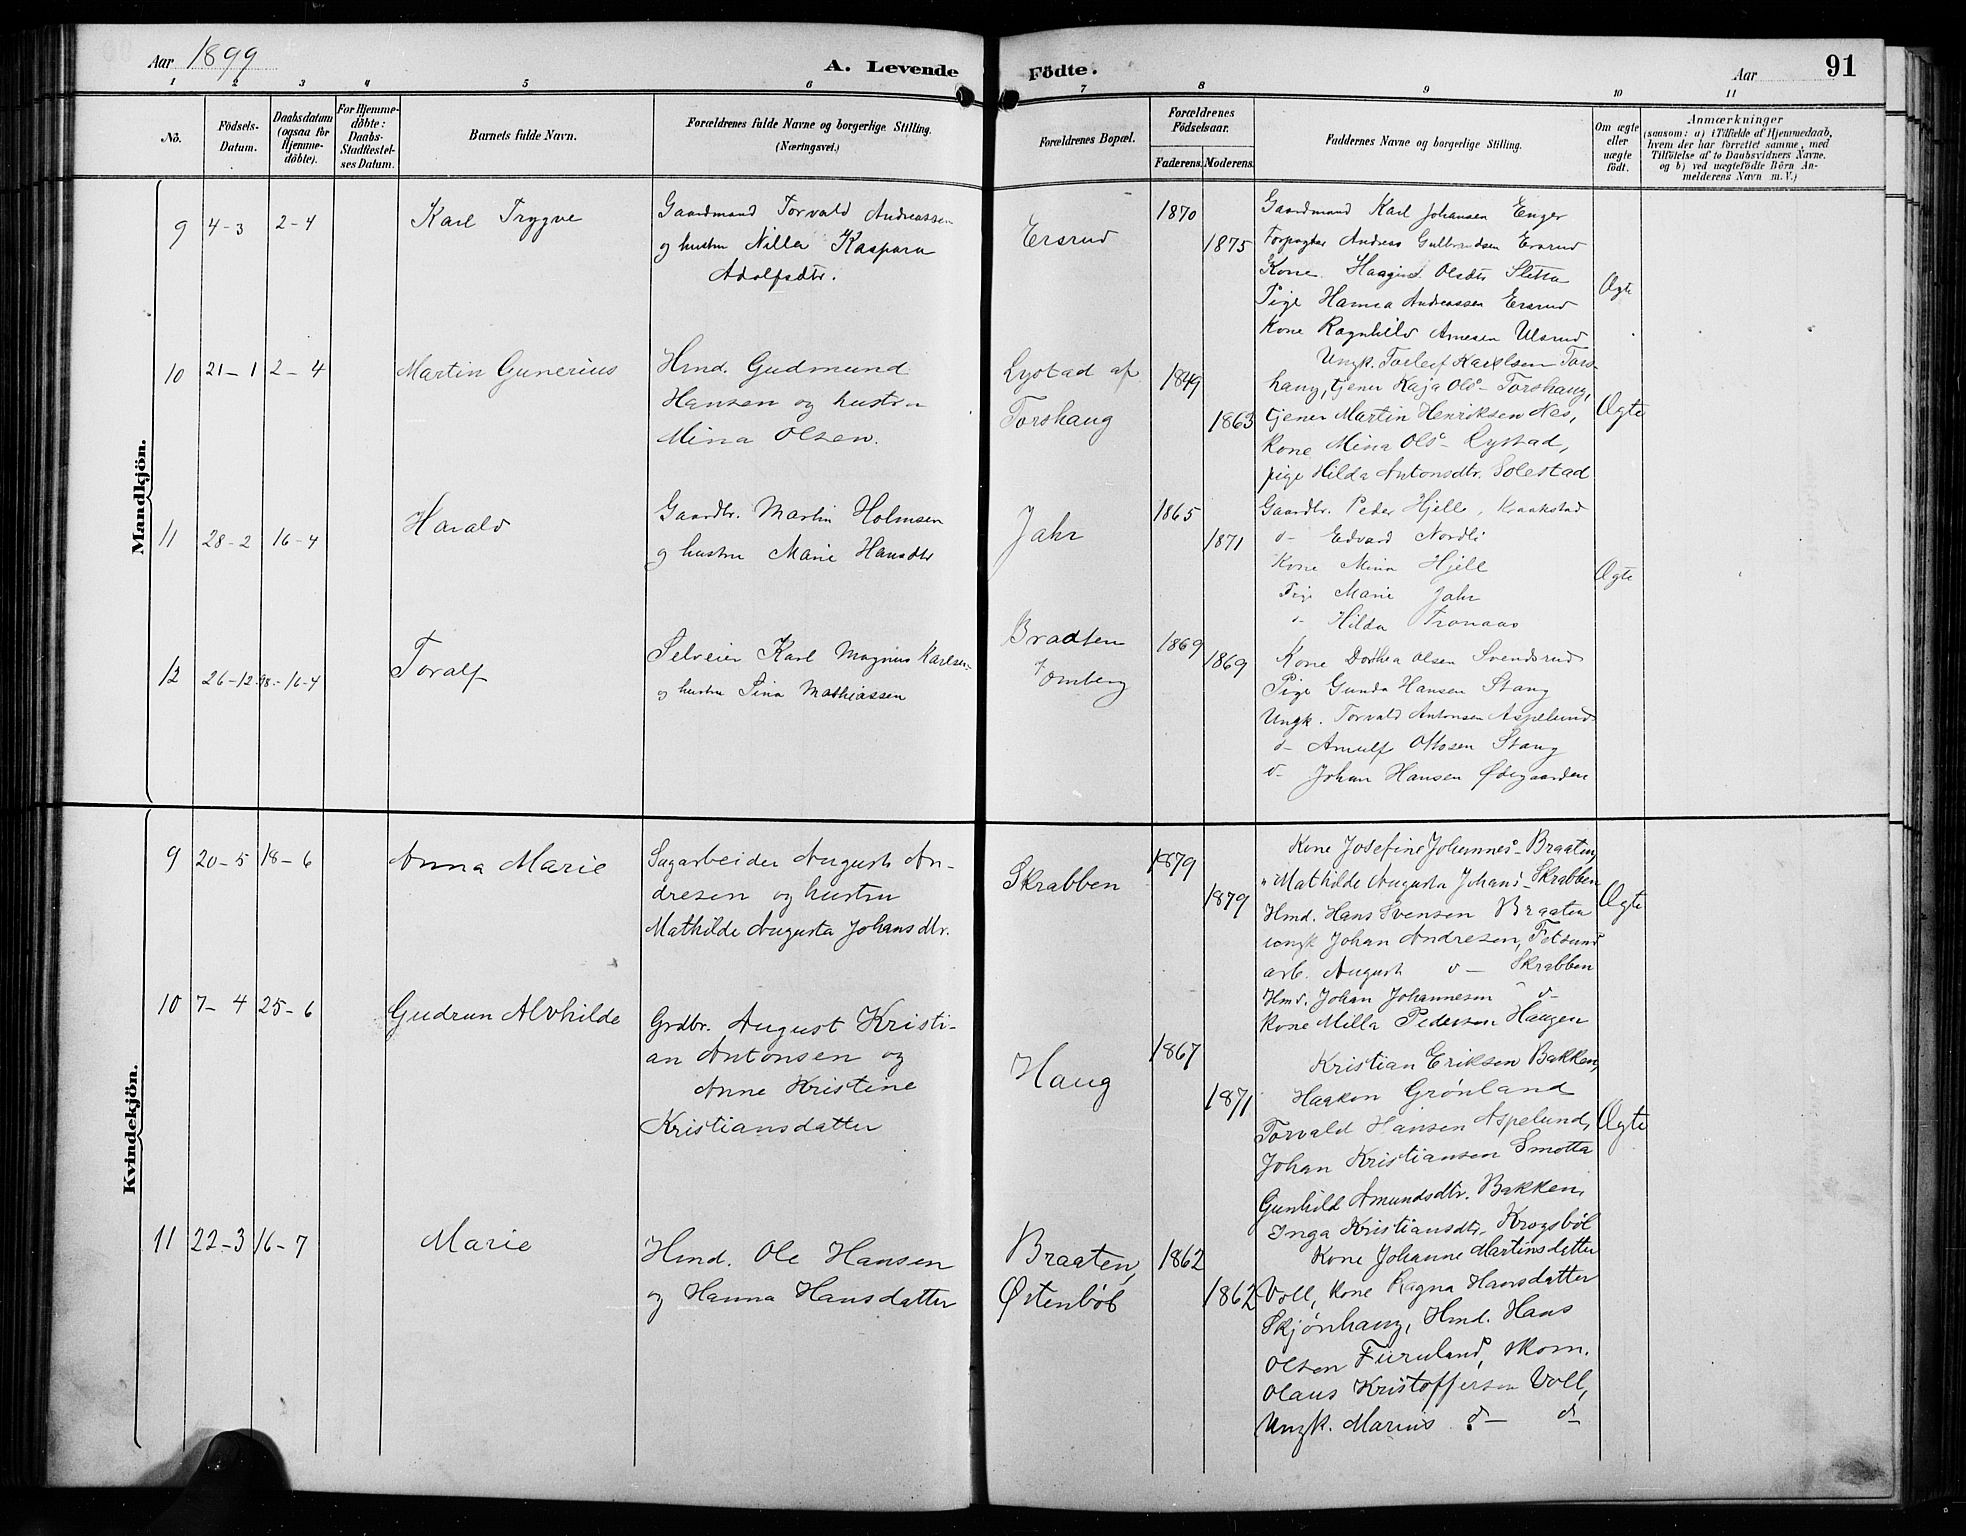 Aar 1899
A. Levende Födte.
Aar
91
1 2 3 4 5 6 7 8 9 10 11
No.
Födsels-
Datum.
Daabsdatum
(ogsaa for
Hjemme-
döbte).
For Hjemme-
döbte:
Daabs-
Stadfæstel-
ses Datum.
Barnets fulde Navn.
Forældrenes fulde Navne og borgerlige Stilling.
(Næringsvei.)
Forældrenes Bopæl.
Forældrenes
Födselsaar.
Faderens. Moderens.
Faddernes Navne og borgerlige Stilling.
Om ægte
eller
uægte
födt.
Anmærkninger
(saasom: a) i Tilfælde af Hjemmedaab,
hvem der har forrettet samme, med
Tilföielse af to Daabsvidners Navne,
og b) ved uægtefödte Börn An-
melderens Navn m. V.)
Mandkjön.
9 4-3 2-4 Karl Trygve
Gaardmand Torvald Andreassen
og hustru Nilla Kaspara
Adolfsdtr.
Ersrud
1870
1875
Gaardmand Karl Johansen Enger
Forpagter Andreas Gulbrandsen Ersrud
Kone Olsdtr Sletta
Pige Hanna Andreassen Ersrud
Kone Ragnhild Arnesen Ulsrud
Ægte
10 21-1 2-4 Martin Gunerius
Hmd. Gudmund
Hansen og hustru
Mina Olsen.
Lystad af
Torshaug
1849
1863
Ungk. Torleif Karlsen Tors-
haug, tjener Kaja Ols- Torshaug,
tjener Martin Henriksen Nes,
Kone Mina Ols- Lystad,
pige Hilda Antonsdtr. Solestad
Ægte
11 28-2 16-4 Harald
Gaardbr. Martin Holmsen
og hustru Marie Hansdtr
Jahr
1865
1871
Gaardbr. Peder Hjelle, Kraakstad
d- Edvard Nordli
Kone Mina Hjell
Pige Marie Jahr
d- Hilda Tronaas
Ægte
12 26-12-98 - 16-4 Toralf
Selveier Karl Magnus Karlsen
og hustru Lina Mathiassen
Braaten
Tomberg
1869
1869
Kone Dorthea Olsen Svendsrud
Pige Gunda Hansen Stang
Ungk. Torvald Antonsen Aspelund
d- Arnulf Ottosen Stang
d- Johan Hansen Ødegaarden
Kvindekjön.
9 20-5 18-6 Anna Marie
Sagarbeider August An-
dresen og hustru
Mathilde Augusta Johansdtr.
Skrabben
1879
1879
Kone Josefine Johannes- Braaten,
" Mathilde Augusta Johans- Skrabben
Hmd. Hans Svensen Braaten
ungk Johan Andresen, Fetsund
arb. August d- Skrabben
Hmd. Johan Johannesen d-
Kone Milla Pedersen Haugen
Ægte
10 7-4 25-6 Gudrun Alvhilde
Grdbr. August Kristi-
an Antonsen og
Anne Kristine
Kristiansdatter
Haug
1867
1871
Kristian Eriksen Bakken,
Haakon Grønland
Torvald Hansen Aspelund,
Johan Kristiansen Smotta
Gunhild Amundsdtr. Bakken,
Inga Kristiansdtr. Krogsbøl
Ægte
11 22-3 16-7 Marie
Hmd. Ole Hansen
og Hanna Hansdatter
Braaten,
Østenbøl
1862
1862
Kone Johanne Martinsdatter
Voll, Kone Ragna Hansdatter
Skjønhaug, Hmd. Hans
Olsen Furuland, skom.
Olaus Kristoffersen Voll,
Ungk. Marius d- d-